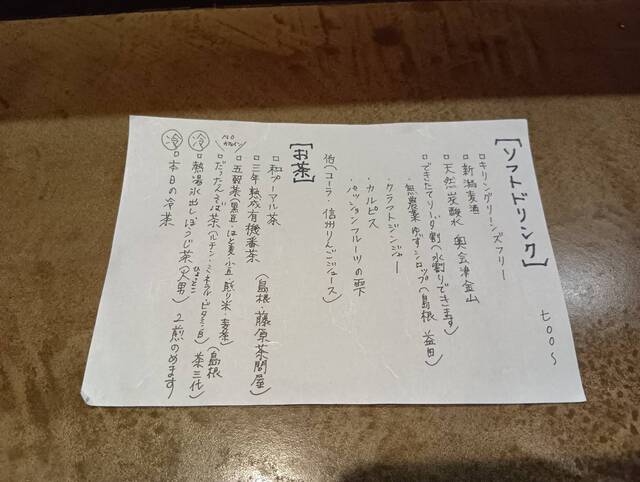 【ソフトドリンク】
七〇〇〜
▫キリングリーンズフリー
▫新潟麦酒
▫天然炭酸水 奥会津金山
▫できたてソーダ割(水割りできます)
・無農薬ゆずシロップ(島根 益田)
・クラフトジンジャー
・カルピス
・パッションフルーツの雫
他(コーラ・信州りんごジュース)
【お茶】
▫和プーアル茶
▫三年熟成有機番茶(島根 藤原茶問屋)
▫五穀茶(黒豆・はと麦・小豆 煎り米・麦茶)
▫だったんそば茶(ルチン・ミネラル・ビタミンB)(島根 茶三代)
冷 ▫熱湯氷出しほうじ茶(大男) 2煎のめます
冷 ▫本日の冷茶